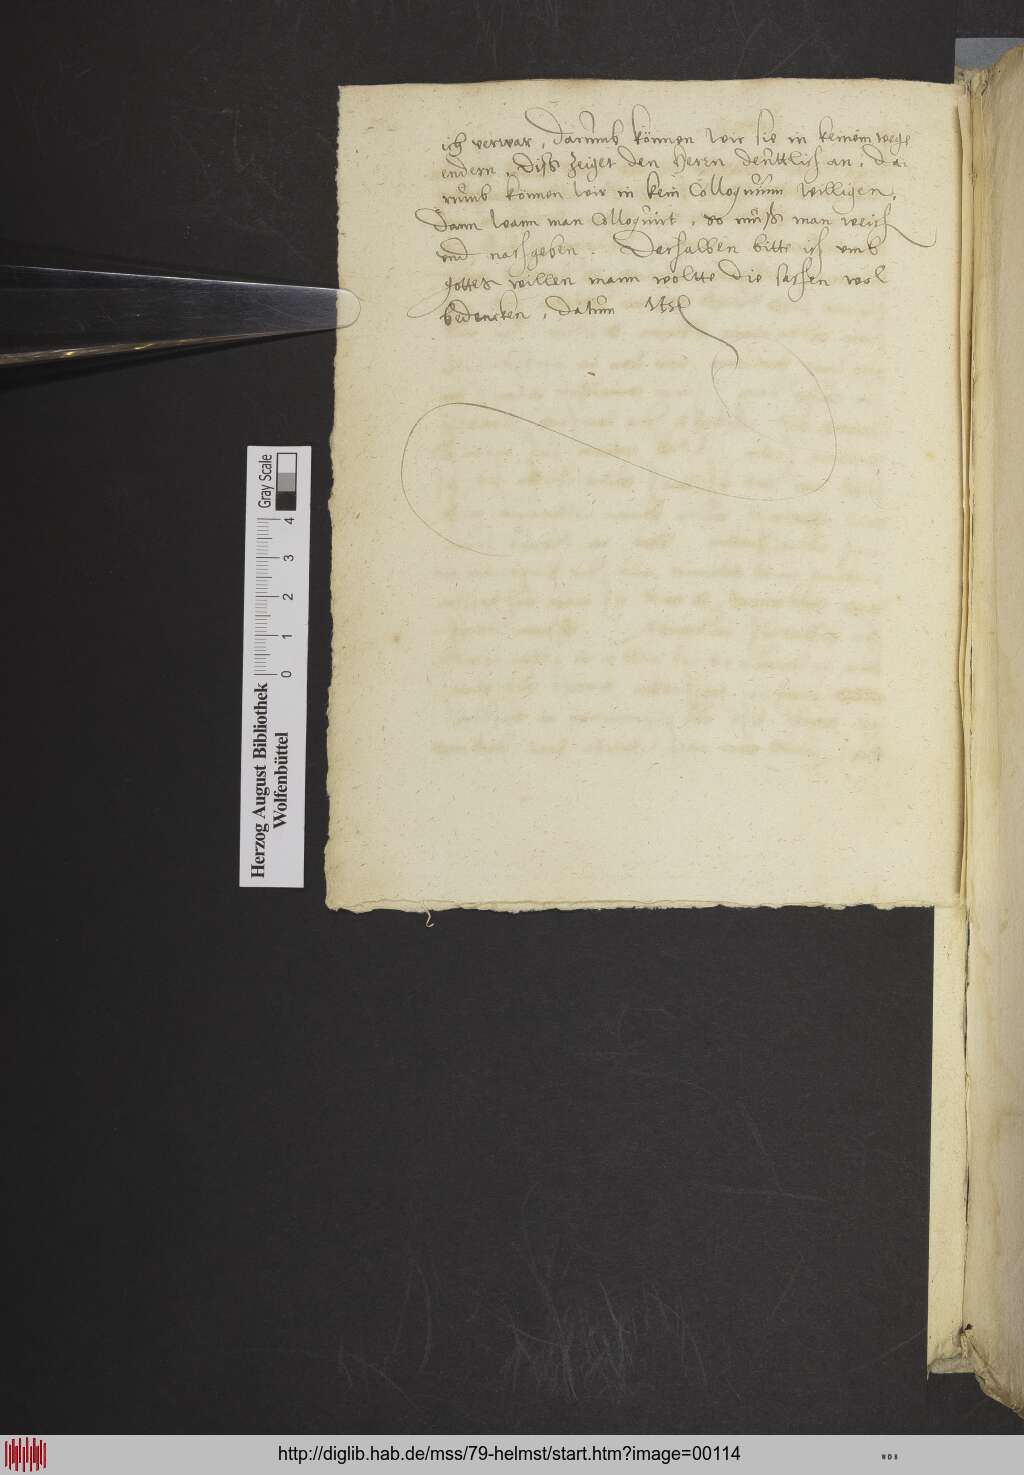 ich verwar, Darumb können wir sie in keinem wege
endern, Diß zeiget den Herrn deuttlich an, Da-
rumb können wir in kein Colloquium willigen,
Dann wann man Colloquirt, so muß man weich
und nachgeben. Derhalben bitte ich umb
gottes willen mann woltte die sachen wol
bedencken, datum
Gray Scale
0 1 2 3 4
Herzog August Bibliothek
Wolfenbüttel
http://diglib.hab.de/mss/79-helmst/start.htm?image=00114
WDB